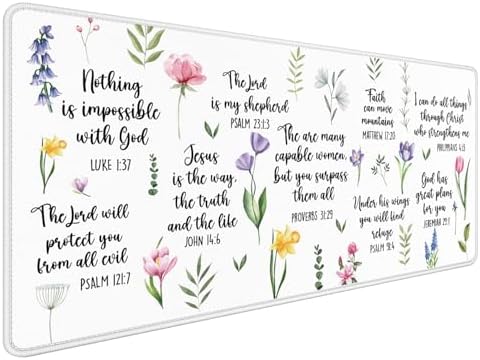 Nothing
is impossible
with God
LUKE 1:37
The Lord
is my shepherd
PSALM 23:1:3
Faith
can move
mountains
MATTHEW 17:20
I can do all things
through Christ
who strengthens me
PHILIPPIANS 4:13
Jesus
is the way,
the truth
and the life
JOHN 14:6
The are many
capable women,
but you surpass
them all
PROVERBS 31:29
God has
great plans
for you
JEREMIAH 29:11
Under his wings
you will kind
refuge
PSALM 91:4
The Lord will
protect you
from all evil
PSALM 121:7